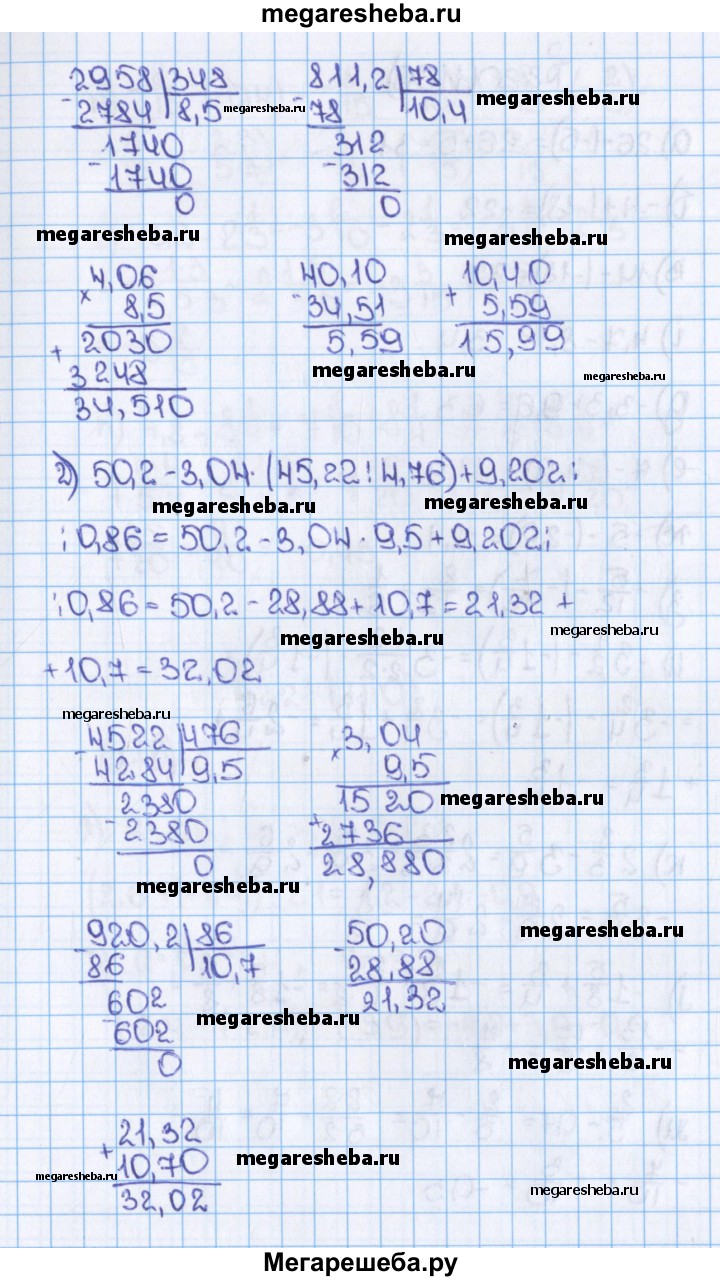 megaresheba.ru
2958 |348     811,2 |78
-2784 |8,5 megaresheba.ru     -78 |10,4 megaresheba.ru
1740     312
-1740     -312
0     0
megaresheba.ru     megaresheba.ru
4,06     40,10     10,40
× 8,5     -34,51     + 5,59
2030     5,59     15,99
+ megaresheba.ru megaresheba.ru
3248
34,510
2) 50,2 - 3,04 · (45,22 : 4,76) + 9,202 :
megaresheba.ru megaresheba.ru
: 0,86 = 50,2 - 3,04 · 9,5 + 9,202 :
: 0,86 = 50,2 - 28,88 + 10,7 = 21,32 +
megaresheba.ru megaresheba.ru
+ 10,7 = 32,02
megaresheba.ru
-4522 |476     × 3,04
4284 |9,5     9,5
2380     1520 megaresheba.ru
-2380     + 2736
0     28,880
megaresheba.ru
-920,2 |86     -50,20 megaresheba.ru
86 |10,7     28,88
602     21,32
-602 megaresheba.ru
0 megaresheba.ru
21,32
+ 10,70 megaresheba.ru
megaresheba.ru 32,02 megaresheba.ru
Мегарешеба.ру